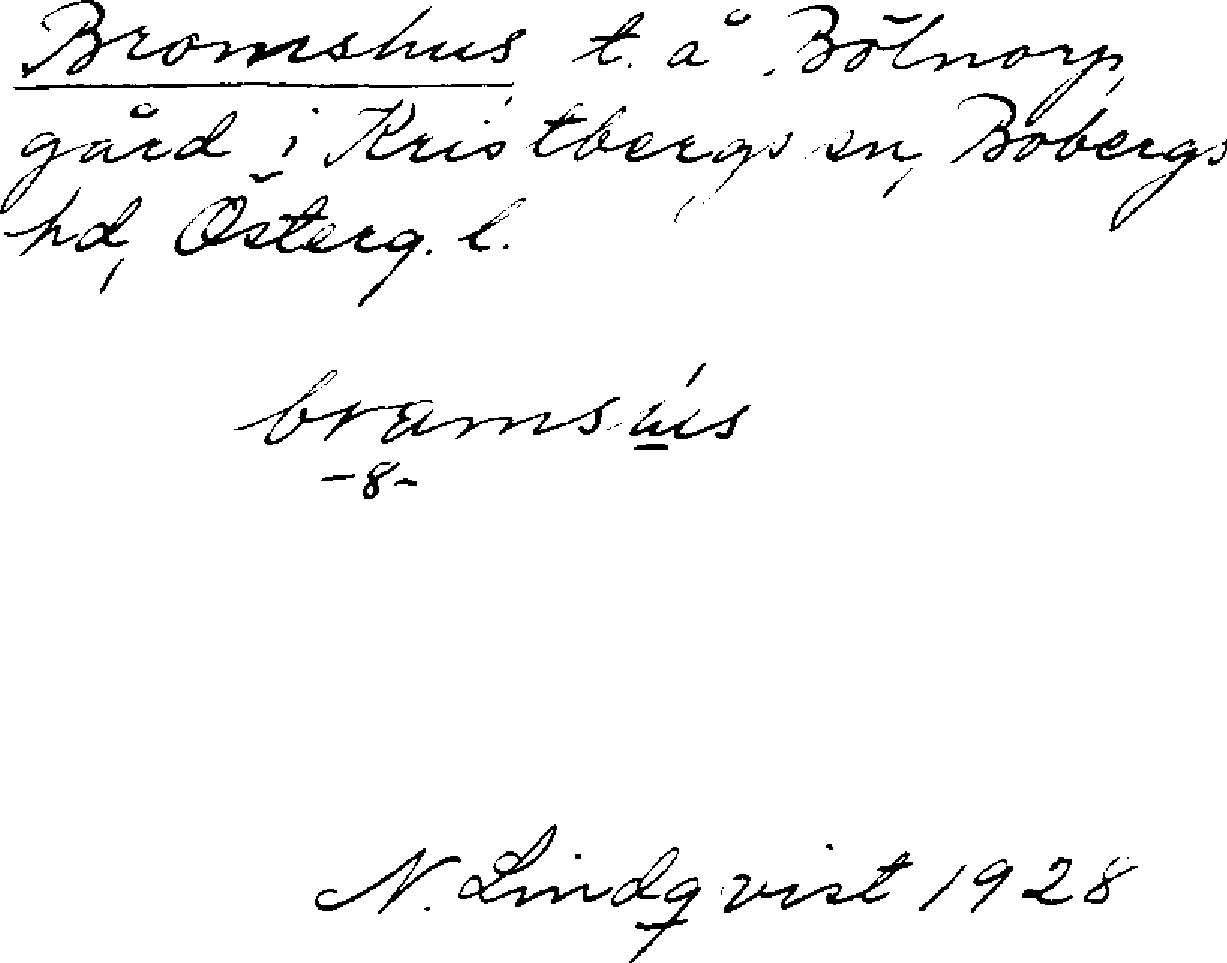 Bromshus t. å Bölnorp,
gård i Kristbergs sn, Bobergs
hd, Österg. l.
bramsús
-8-
N. Lindqvist 1928